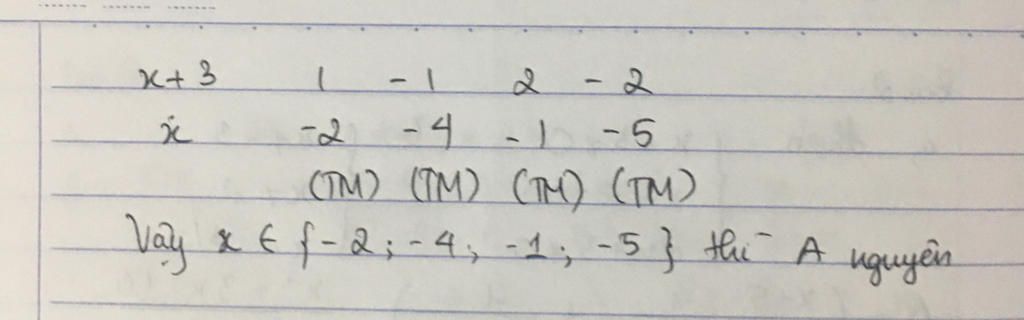 x+3 1 -1 2 -2
x -2 -4 -1 -5
(TM) (TM) (TM) (TM)
Vậy x ∈ {-2; -4; -1; -5} thì A nguyên